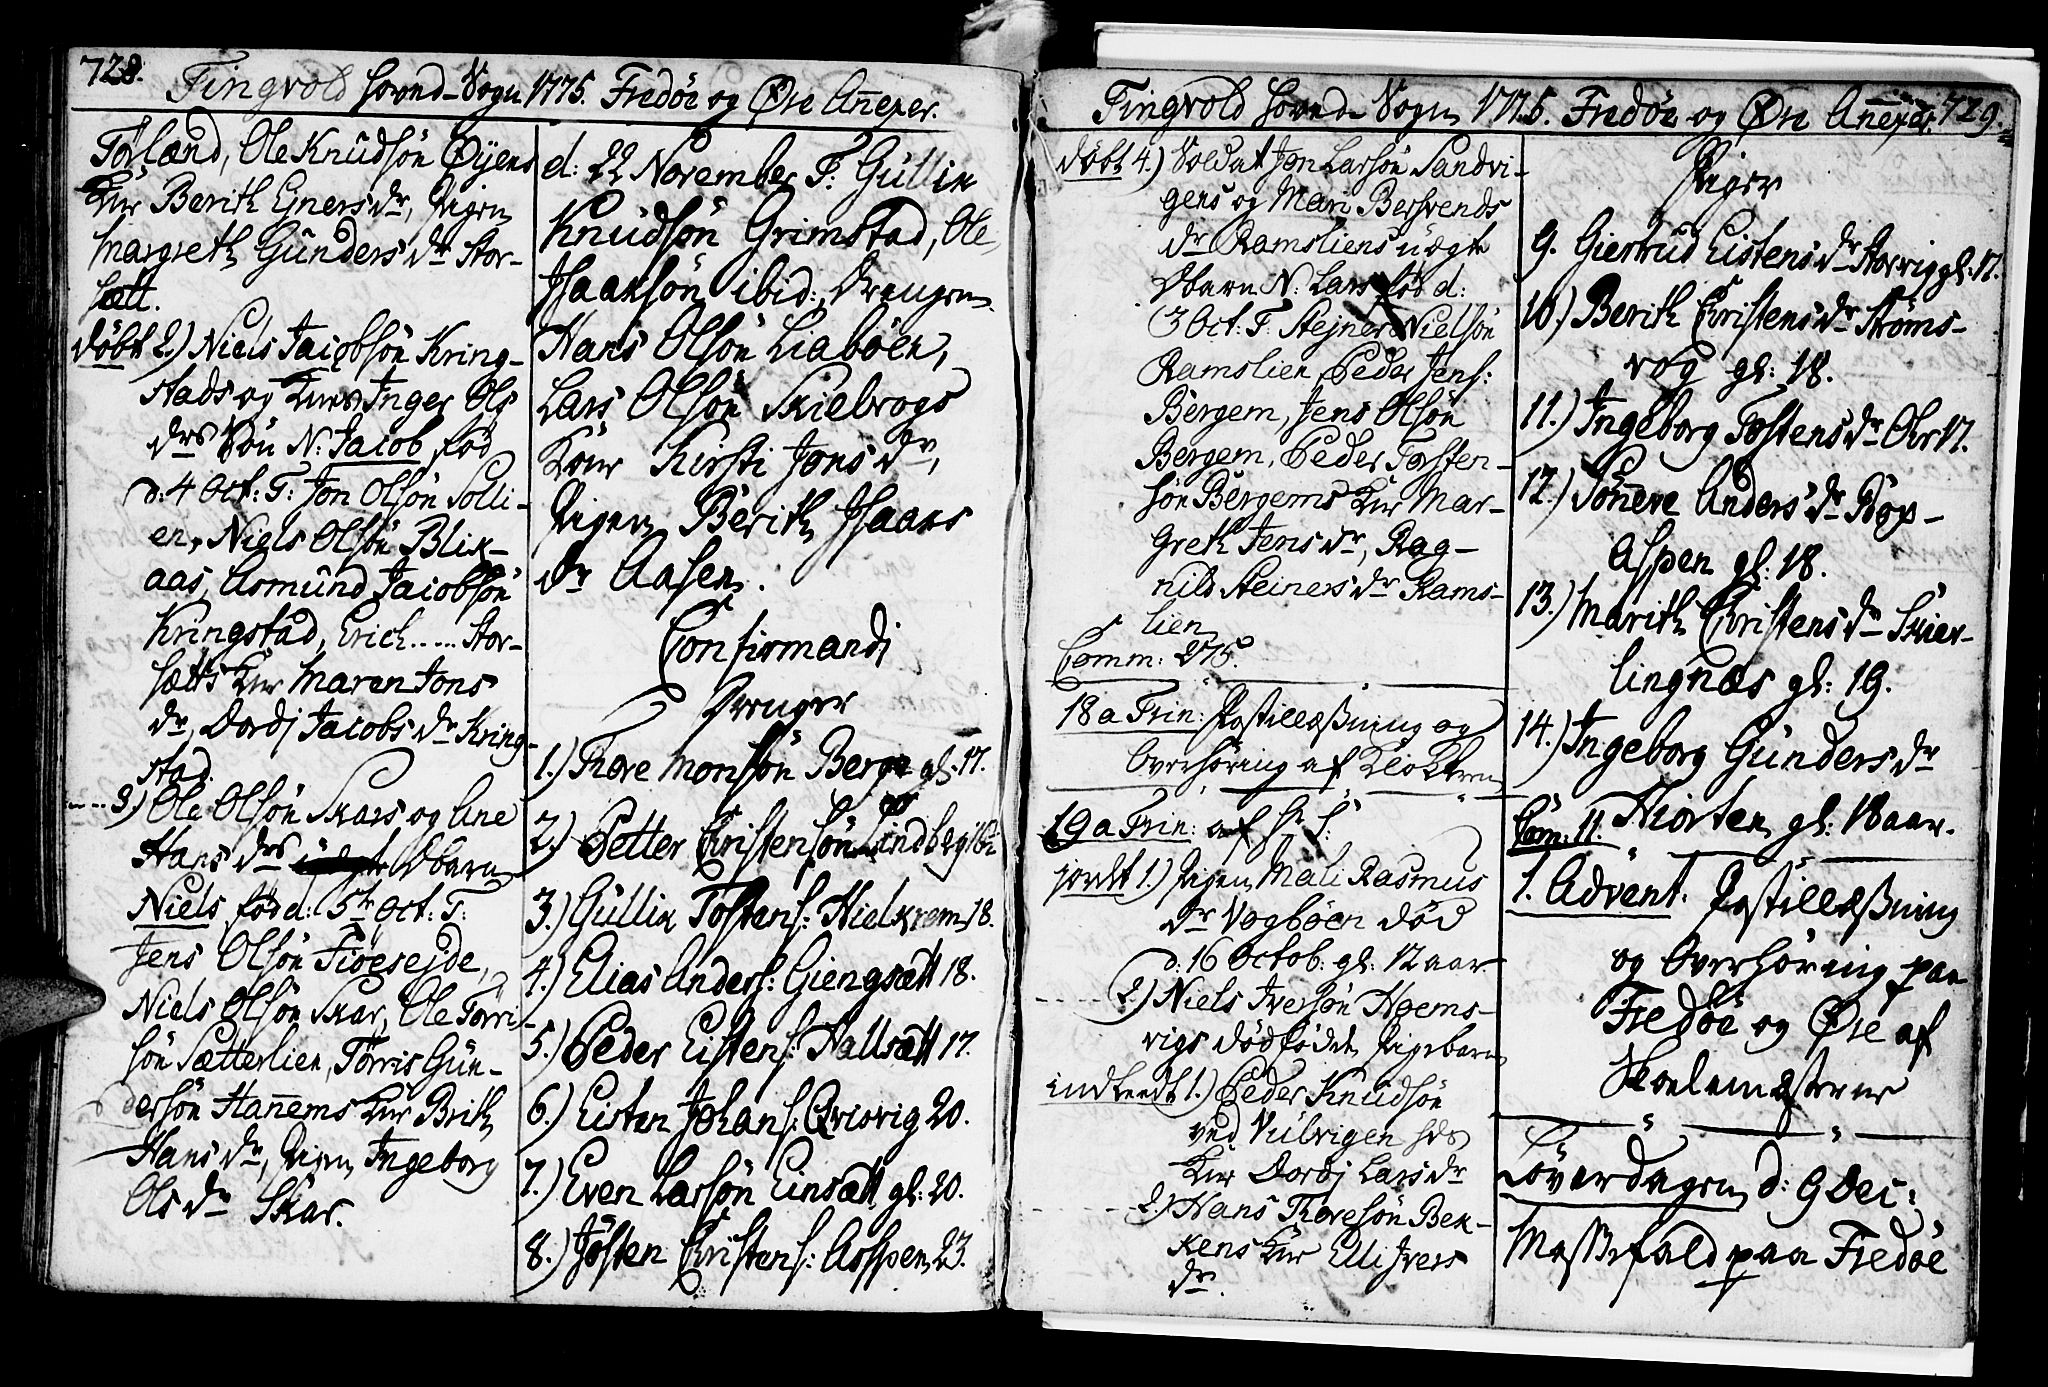 728.
Tingvold Hoved-Sogn 1775. Fredöe og Øre Añexer.
Torland, Ole Knudsön Øyens
Kne Berith Ejnersdr, Pigen
Margreth Gundersdr Stor-
sætt.
döbt 2.) Niels Jacobsön Kring-
stads og Knes Inger Ols
drs Sön N: Jacob, fød
d: 4 Oct: F: Jon Olsön Solli-
en, Niels Olsön Blik-
aas, Asmund Jacobsön
Kringstad, Erich ..... Stor-
sætts Kne Maren Jons
dr, Dordj Jacobsdr Kring-
stad.
3.) Ole Olsön Skars og Ane
Hans drs Dbarn
Niels fød d: 5te Oct: F:
Jens Olsön Fiöesejde,
Niels Olsön Skar, Ole Torri
sön Sætterlien, Torris Gun-
dersön Hañems Kne Brith
Hansdr, Pigen Ingeborg
Olsdr Skar.
d: 22 November F: Gullik
Knudsön Grimstad, Ole
Isaaksön ibid: Drengen
Hans Olsön Liaböen,
Lars Olsön Skiebrogs
Kone Kirsti Jonsdr,
Pigen Berith Isaacs
dr Aasen.
Confirmandi
Drenger
1.) Thore Monsön Berge gl. 17.
2.) Petter Christensön Lindberg 16
3.) Gullik Tostens: Hielkrem 18.
4.) Elias Anders: Giengsætt 18.
5.) Peder Eistens: Hallsætt 17.
6.) Eisten Johans: Qviovig 20.
7.) Even Larsön Einsætt gl: 20.
8.) Josten Christens: Aaspen 23.
Tingvold Hoved Sogn 1775. Fredöe og Øre Añexer. 729.
döbt 4.) Soldat Jon Larsön Sandvi-
gens og Mari Bersvends
dr Ramsliens uægte
Dbarn N: Lars fød d:
3 Oct: F: Stejner Nielsön
Ramslien, Peder Jens:
Bergem, Jens Olsön
Bergem, Peder Torsten-
sön Bergems Kne Mar-
greth Jensdr, Rag-
nild Steinersdr Rams-
lien
Comm: 275.
18 a Trin: Postillæsning og
Overhøring af Klokkeren
19 a Trin: af Hr S:
jordt 1.) Pigen Mali Rasmus
dr Vogböen död
d: 16 Octob: gl: 12 aar
2.) Niels Iversön Hoems-
vigs dödfödde Pigebarn
indleedt 1.) Peder Knudsön
ved Vulvigen hds
Kne Dordj Larsdr
2.) Hans Thoresön Bek-
kens Kne Elli Ivers
dr.
Piger
9. Giertrud Eistensdr Storvig gl: 17.
10.) Berith Christensdr Ströms-
vog gl: 18.
11.) Ingeborg Tostensdr Ohr 17.
12.) Soñeve Andersdr Röp-
aspen gl: 18.
13.) Marith Christensdr Skier-
lingnæs gl: 19.
14.) Ingeborg Gundersdr
Hiorten gl: 18 aar.
Com: 11.
1. Advent. Postillæsning
og Overhøring paa
Fredöe og Øre af
Skolemesterne
Löverdagen d: 9 Dec:
Messefald paa Fredöe